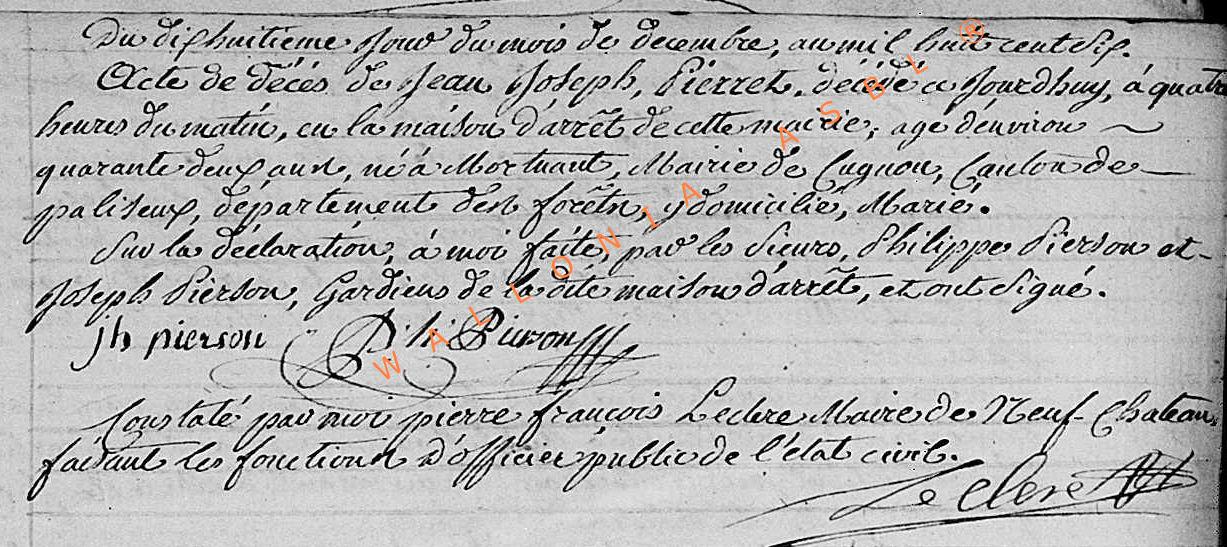 Du dixhuitième Jour du mois de decembre, an mil huit cent dix.
Acte de décés de Jean Joseph Pierret, décédé ce Jourdhuy, à quatre
heures du matin, en la maison d'arrêt de cette mairie, agé d'environ
quarante deux ans, né à Mortuant, Mairie de Cugnon, Canton de
paliseux, département des forêts, y domicilié, Marié.
Sur la déclaration, à moi faite, par les Sieurs, Philippe Pierson et
Joseph Pierson, Gardiens de la dite maison d'arrêt, et ont Signé.
jh pierson Ph: Pierson
Constaté par moi pierre françois Leclere Maire de Neuf-Chateau,
faisant les fonctions d'officier public de l'état civil.
Leclere
WALLONIA ASBL ®